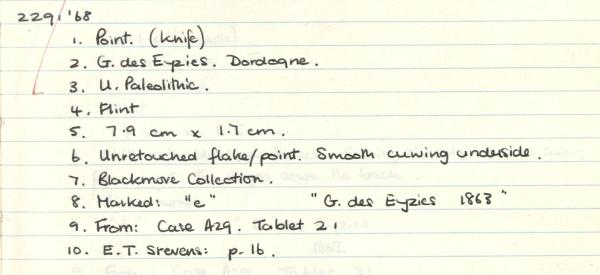 229, '68
1. Point. (knife)
2. G. des Eyzies. Dordogne.
3. U. Paleolithic.
4. Flint
5. 7.9 cm x 1.7 cm.
6. Unretouched flake/point. Smooth curving underside.
7. Blackmore Collection.
8. Marked: "e" "G. des Eyzies 1863"
9. From: Case A29. Tablet 21
10. E.T. Stevens: p. 16.